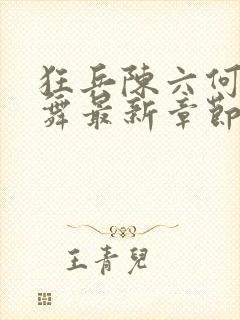 狂兵陳六何
舞最新章節
王青兒